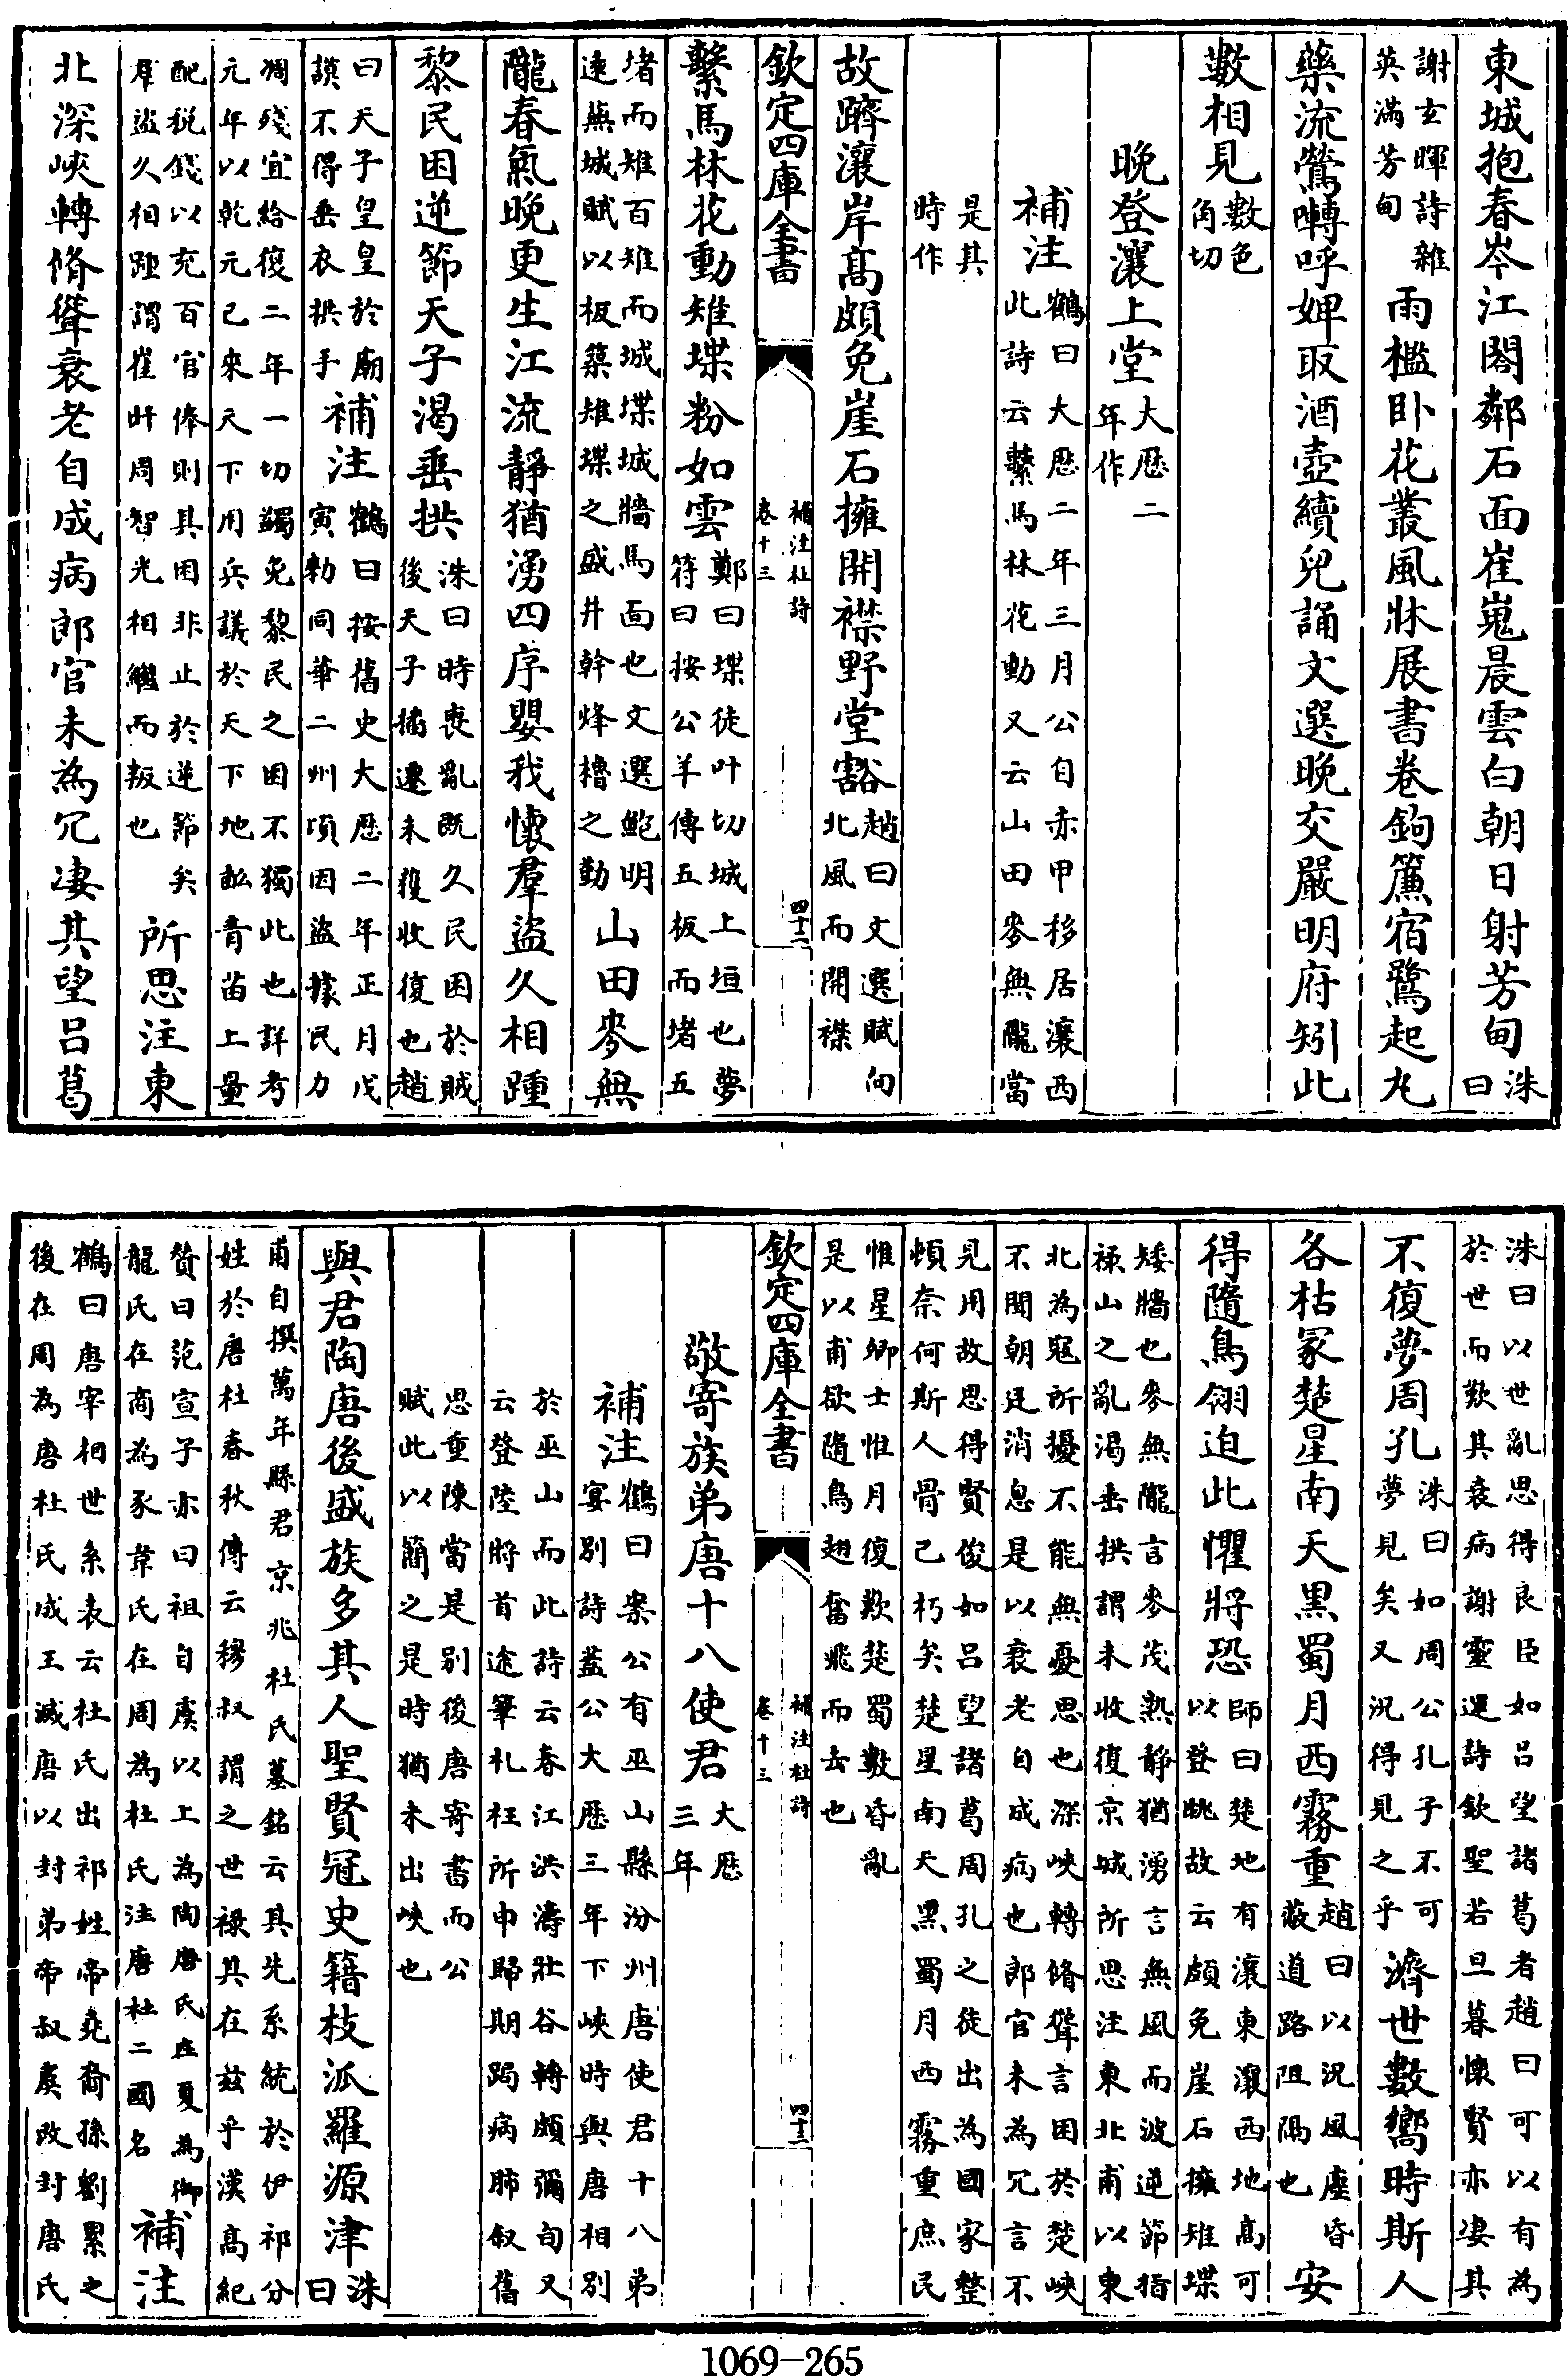 東城抱春岑江閣鄰石面崔嵬晨雲白朝日射芳甸洙曰
謝玄暉詩雜英滿芳甸雨檻卧花叢風牀展書卷鉤簾宿鷺起丸
藥流鶯囀呼婢取酒壺續兒誦文選晚交嚴明府矧此
數相見數色角切
晚登瀼上堂大厯二年作
補注鶴曰大厯二年三月公自赤甲移居瀼西此詩云繫馬林花動又云山田麥無隴當
是其時作
故躋瀼岸髙頗免崖石擁開襟野堂豁趙曰文選賦向北風而開襟
欽定四庫全書
補注杜詩
卷十三
四十二
繫馬林花動雉堞粉如雲鄭曰堞徒叶切城上垣也夢符曰按公羊傳五板而堵五
堵而雉百雉而城堞城牆馬面也文選鮑明逺蕪城賦以板築雉堞之盛井幹烽櫓之勤山田麥無
隴春氣晚更生江流靜猶湧四序嬰我懷羣盜久相踵
黎民困逆節天子渴垂拱洙曰時喪亂既久民困於賊後天子播遷未獲收復也趙
曰天子皇皇於廟謨不得垂衣拱手補注鶴曰按舊史大厯二年正月戊寅勅同華二州頃因盜據民力
凋殘宜給復二年一切蠲免黎民之困不獨此也詳考元年以乾元已來天下用兵議於天下地畝青苗上量
配税錢以充百官俸則其困非止於逆節矣羣盜久相踵謂崔旰周智光相繼而叛也所思注東
北深峽轉脩聳衰老自成病郎官未為冗凄其望呂葛
洙曰以世亂思得良臣如呂望諸葛者趙曰可以有為於世而歎其衰病謝靈運詩欽聖若旦暮懷賢亦凄其
不復夢周孔洙曰如周公孔子不可夢見矣又況得見之乎濟世數嚮時斯人
各枯冢楚星南天黒蜀月西霧重趙曰以況風塵昏蔽道路阻隔也安
得隨鳥翎迫此懼將恐師曰楚地有瀼東瀼西地髙可以登眺故云頗免崖石擁雉堞
矮牆也麥無隴言麥茂熟靜猶湧言無風而波逆節指禄山之亂渴垂拱謂未收復京城所思注東北甫以東
北為寇所擾不能無憂思也深峽轉脩聳言困於楚峽不聞朝廷消息是以衰老自成病也郎官未為冗言不
見用故思得賢俊如呂望諸葛周孔之徒出為國家整頓奈何斯人骨已朽矣楚星南天黒蜀月西霧重庶民
惟星卿士惟月復歎楚蜀數昏亂是以甫欲隨鳥翅奮飛而去也
欽定四庫全書
補注杜詩
卷十三
四十三
敬寄族弟唐十八使君大厯三年
補注鶴曰案公有巫山縣汾州唐使君十八弟宴别詩蓋公大厯三年下峽時與唐相别
於巫山而此詩云春江洪濤壯谷轉頗彌旬又云登陸將首途筆札枉所申歸期跼病肺叙舊
思重陳當是别後唐寄書而公賦此以簡之是時猶未出峽也
與君陶唐後盛族多其人聖賢冠史籍枝派羅源津洙曰
甫自撰萬年縣君京兆杜氏墓銘云其先系統於伊祁分姓於唐杜春秋傳云穆叔謂之世禄其在兹乎漢髙紀
贊曰范宣子亦曰祖自虞以上為陶唐氏在夏為御龍氏在商為豕韋氏在周為杜氏注唐杜二國名補注
鶴曰唐宰相世系表云杜氏出祁姓帝堯裔孫劉累之後在周為唐杜氏成王滅唐以封弟帝叔虞改封唐氏
1069-265